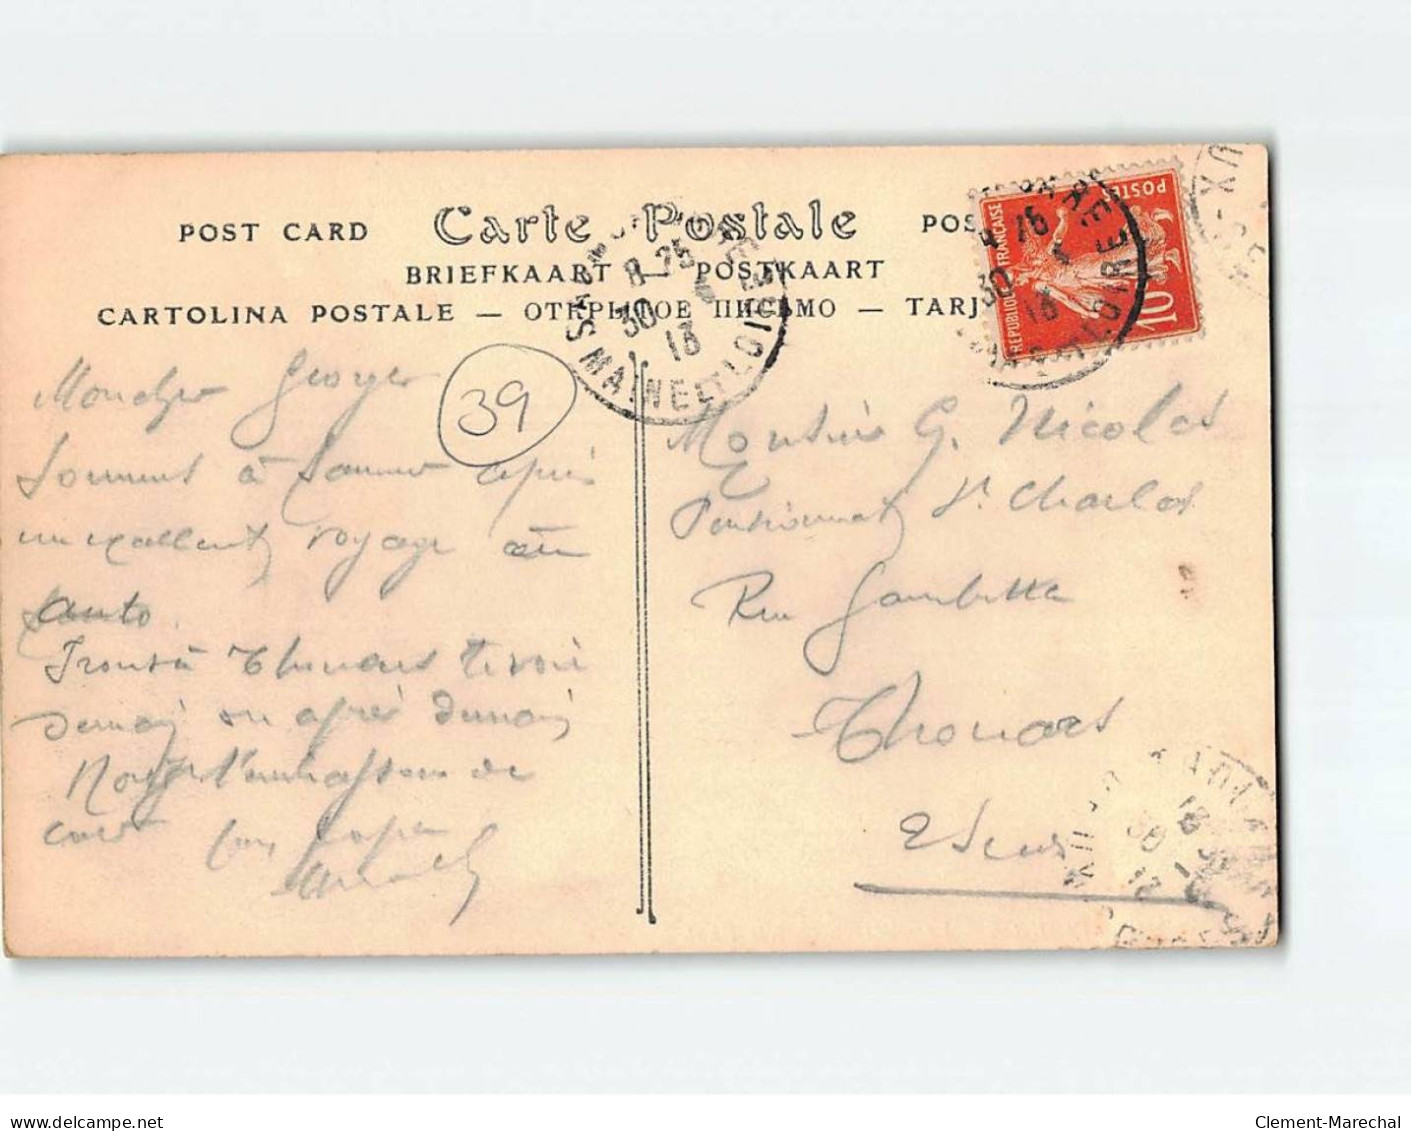 POST CARD Carte Postale POS
BRIEFKAART — POSTKAART
CARTOLINA POSTALE — ОТКРЫТОЕ ПИСЬМО — TARJ
POSTES
REPUBLIQUE FRANÇAISE
10
8 25
30
13
MAINE ET LOIRE
30
13
LOIRE
39
Mon cher Georges
Sommes à Saumur après
un excellent voyage en
auto.
Thouars te voir
demain ou après demain
de
cœur ton papa
Monsieur G. Nicolas
Pensionnat St Charles
Rue Gambetta
Thouars
2 Sèvres
delcampe.net
Clement-Marechal